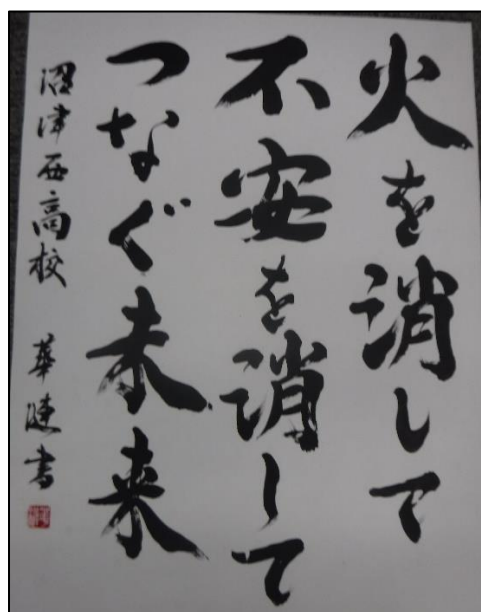 火を消して
不安を消して
つなぐ未来
沼津西高校 華蓮書